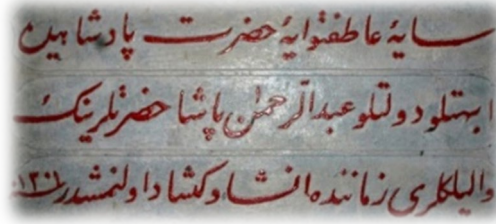 سایهٔ عاطفتوایهٔ حضرت پادشاهیده
ابهتلو دولتلو عبدالرحمن پاشا حضرتلرینک
والیلکلری زماننده انشاد و کشاد اولنمشدر ١٣٠١